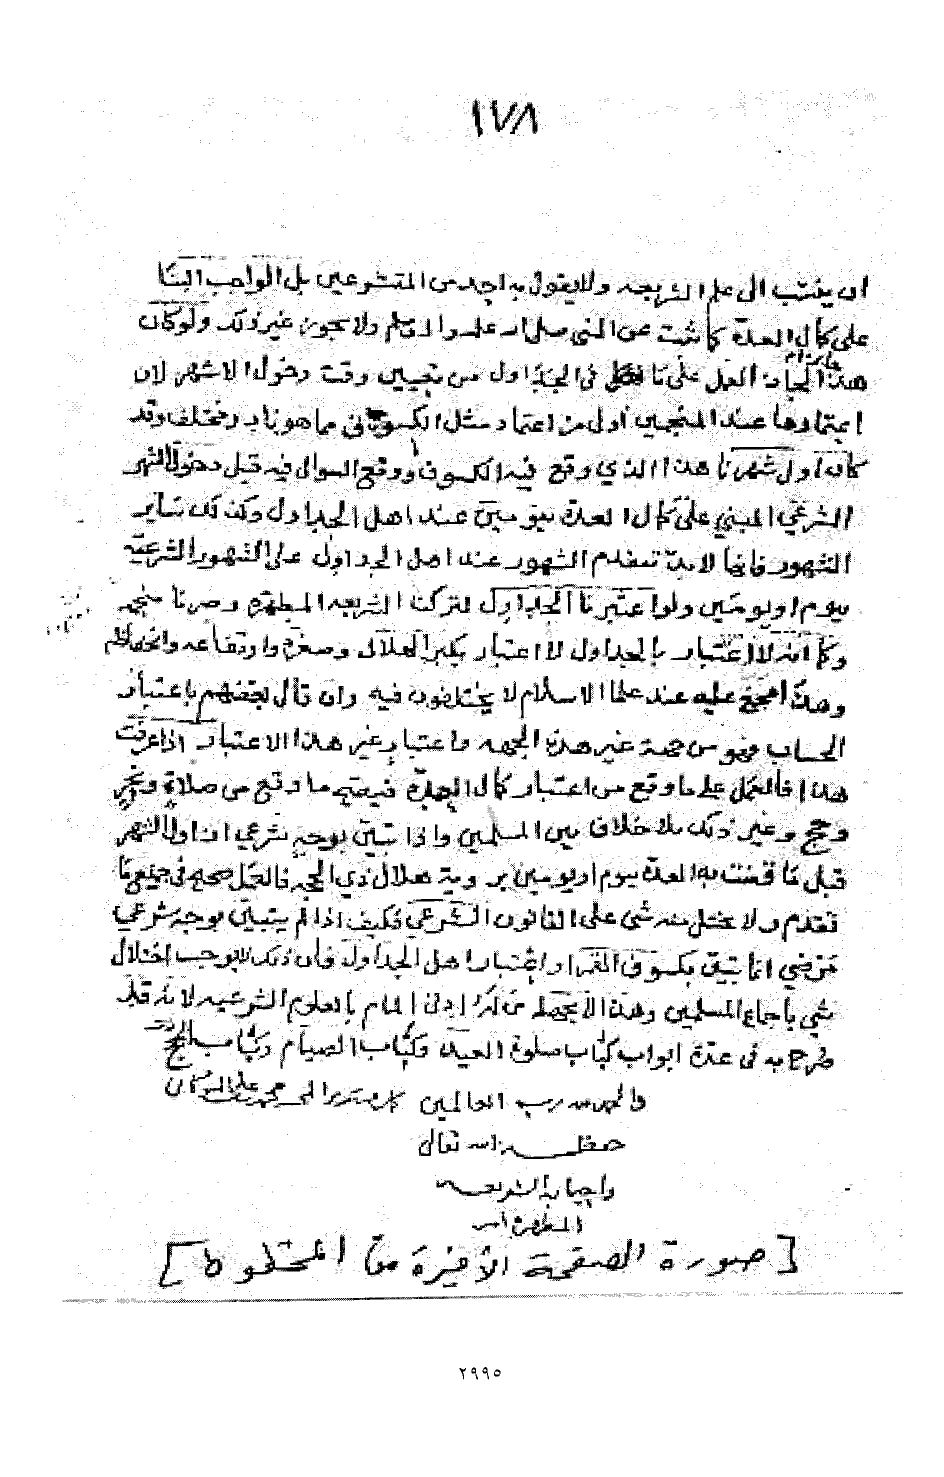 ١٧٨
ان ينتسب الى علم الشريعه ولا يقول به احد من المتشرعين بل الواجب البنا
على كمال العدة كما ثبت عن النبي صلى الله عليه واله وسلم ولا يجوز غير ذلك ولو كان
هذا العمل على ما في الجداول من تعيين وقت دخول الاشهر لان
اعتمادها عند المنجمين اولى من اعتماد مثل الكسوف مما هو نادر ومختلف وقد
كان اول شهرنا هذا الذي وقع فيه الكسوف ووقع السوال فيه قبل دخول الشهر
الشرعي المبني على كمال العدة بيومين عند اهل الجداول وكذلك ساير
الشهور فانها لا بد تتقدم الشهور عند اهل الجداول على الشهور الشرعيه
بيوم او يومين ولو اعتبرنا الجداول لتركنا الشريعه المطهره وصرنا منجمه
وكما انه لا اعتبار بالجداول لا اعتبار بكبر الهلال وصغره وارتفاعه وانخفاضه
وهذا مجمع عليه عند علما الاسلام لا يختلفون فيه وان قال بعضهم باعتبار
الحساب فهو من جهة غير هذه الجهه واعتبار غير هذا الاعتبار اذا عرفت
هذا فالعمل على ما وقع من اعتبار كمال العدة فيصح ما وقع من صلاة ونحر
وحج وغير ذلك بلا خلاف بين المسلمين واذا تبين بوجه شرعي ان اول الشهر
قبل ما قضت به العدة بيوم او يومين برويه هلال ذي الحجه فالعمل صحيح في جميع ما
تقدم ولا يختل منه شى على القانون الشرعي فكيف اذا لم يتبين بوجه شرعي
مرضي انما تبين بكسوف القمر او اعتبار اهل الجداول فان ذلك لا يوجب اختلال
شي باجماع المسلمين وهذا لا يجهله من له ادنى المام بالعلوم الشرعيه لانه قد
صرح به في عدة ابواب كتاب صلوة العيد وكتاب الصيام وكتاب الحج
والحمد لله رب العالمين محمد بن علي الشوكاني
حفظه الله تعالى
واحيا به الشريعه
المطهره امين
[صورة الصفحة الأخيرة من المخطوط]
٢٩٩٥